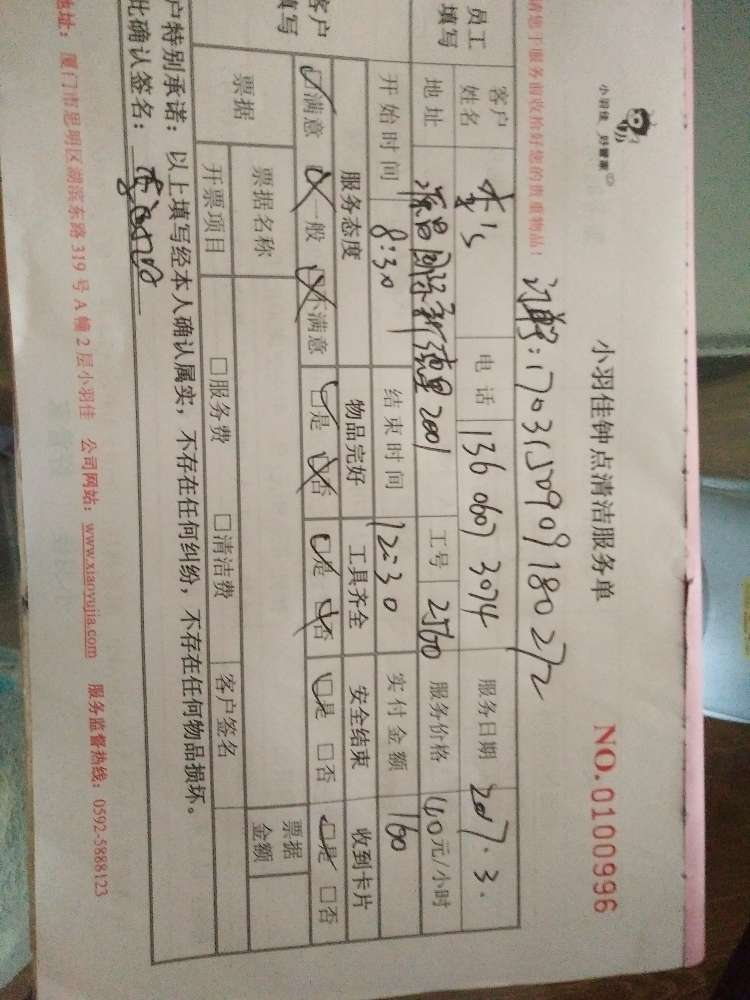 小羽佳 好管家
小羽佳钟点清洁服务单
NO.0100996
请您于服务前收拾好您的贵重物品!
订单号:17031509091802 72
员工填写
客户姓名 李's 电话 136 0607 3074 服务日期 2017.3.
地址 源昌国际新德里2001 工号 2560 服务价格 40元/小时
开始时间 8:30 结束时间 12:30 实付金额 160
客户填写
服务态度 物品完好 工具齐全 安全结束 收到卡片
☑满意 □一般 □不满意 □是 □否 □是 □否 □是 □否 □是 □否
票据 票据名称 票据金额
开票项目 □服务费 □清洁费 客户签名
户特别承诺:以上填写经本人确认属实,不存在任何纠纷,不存在任何物品损坏。
此确认签名:
地址:厦门市思明区湖滨东路319号A幢2层小羽佳 公司网站:www.xiaoyujia.com 服务监督热线:0592-5888123